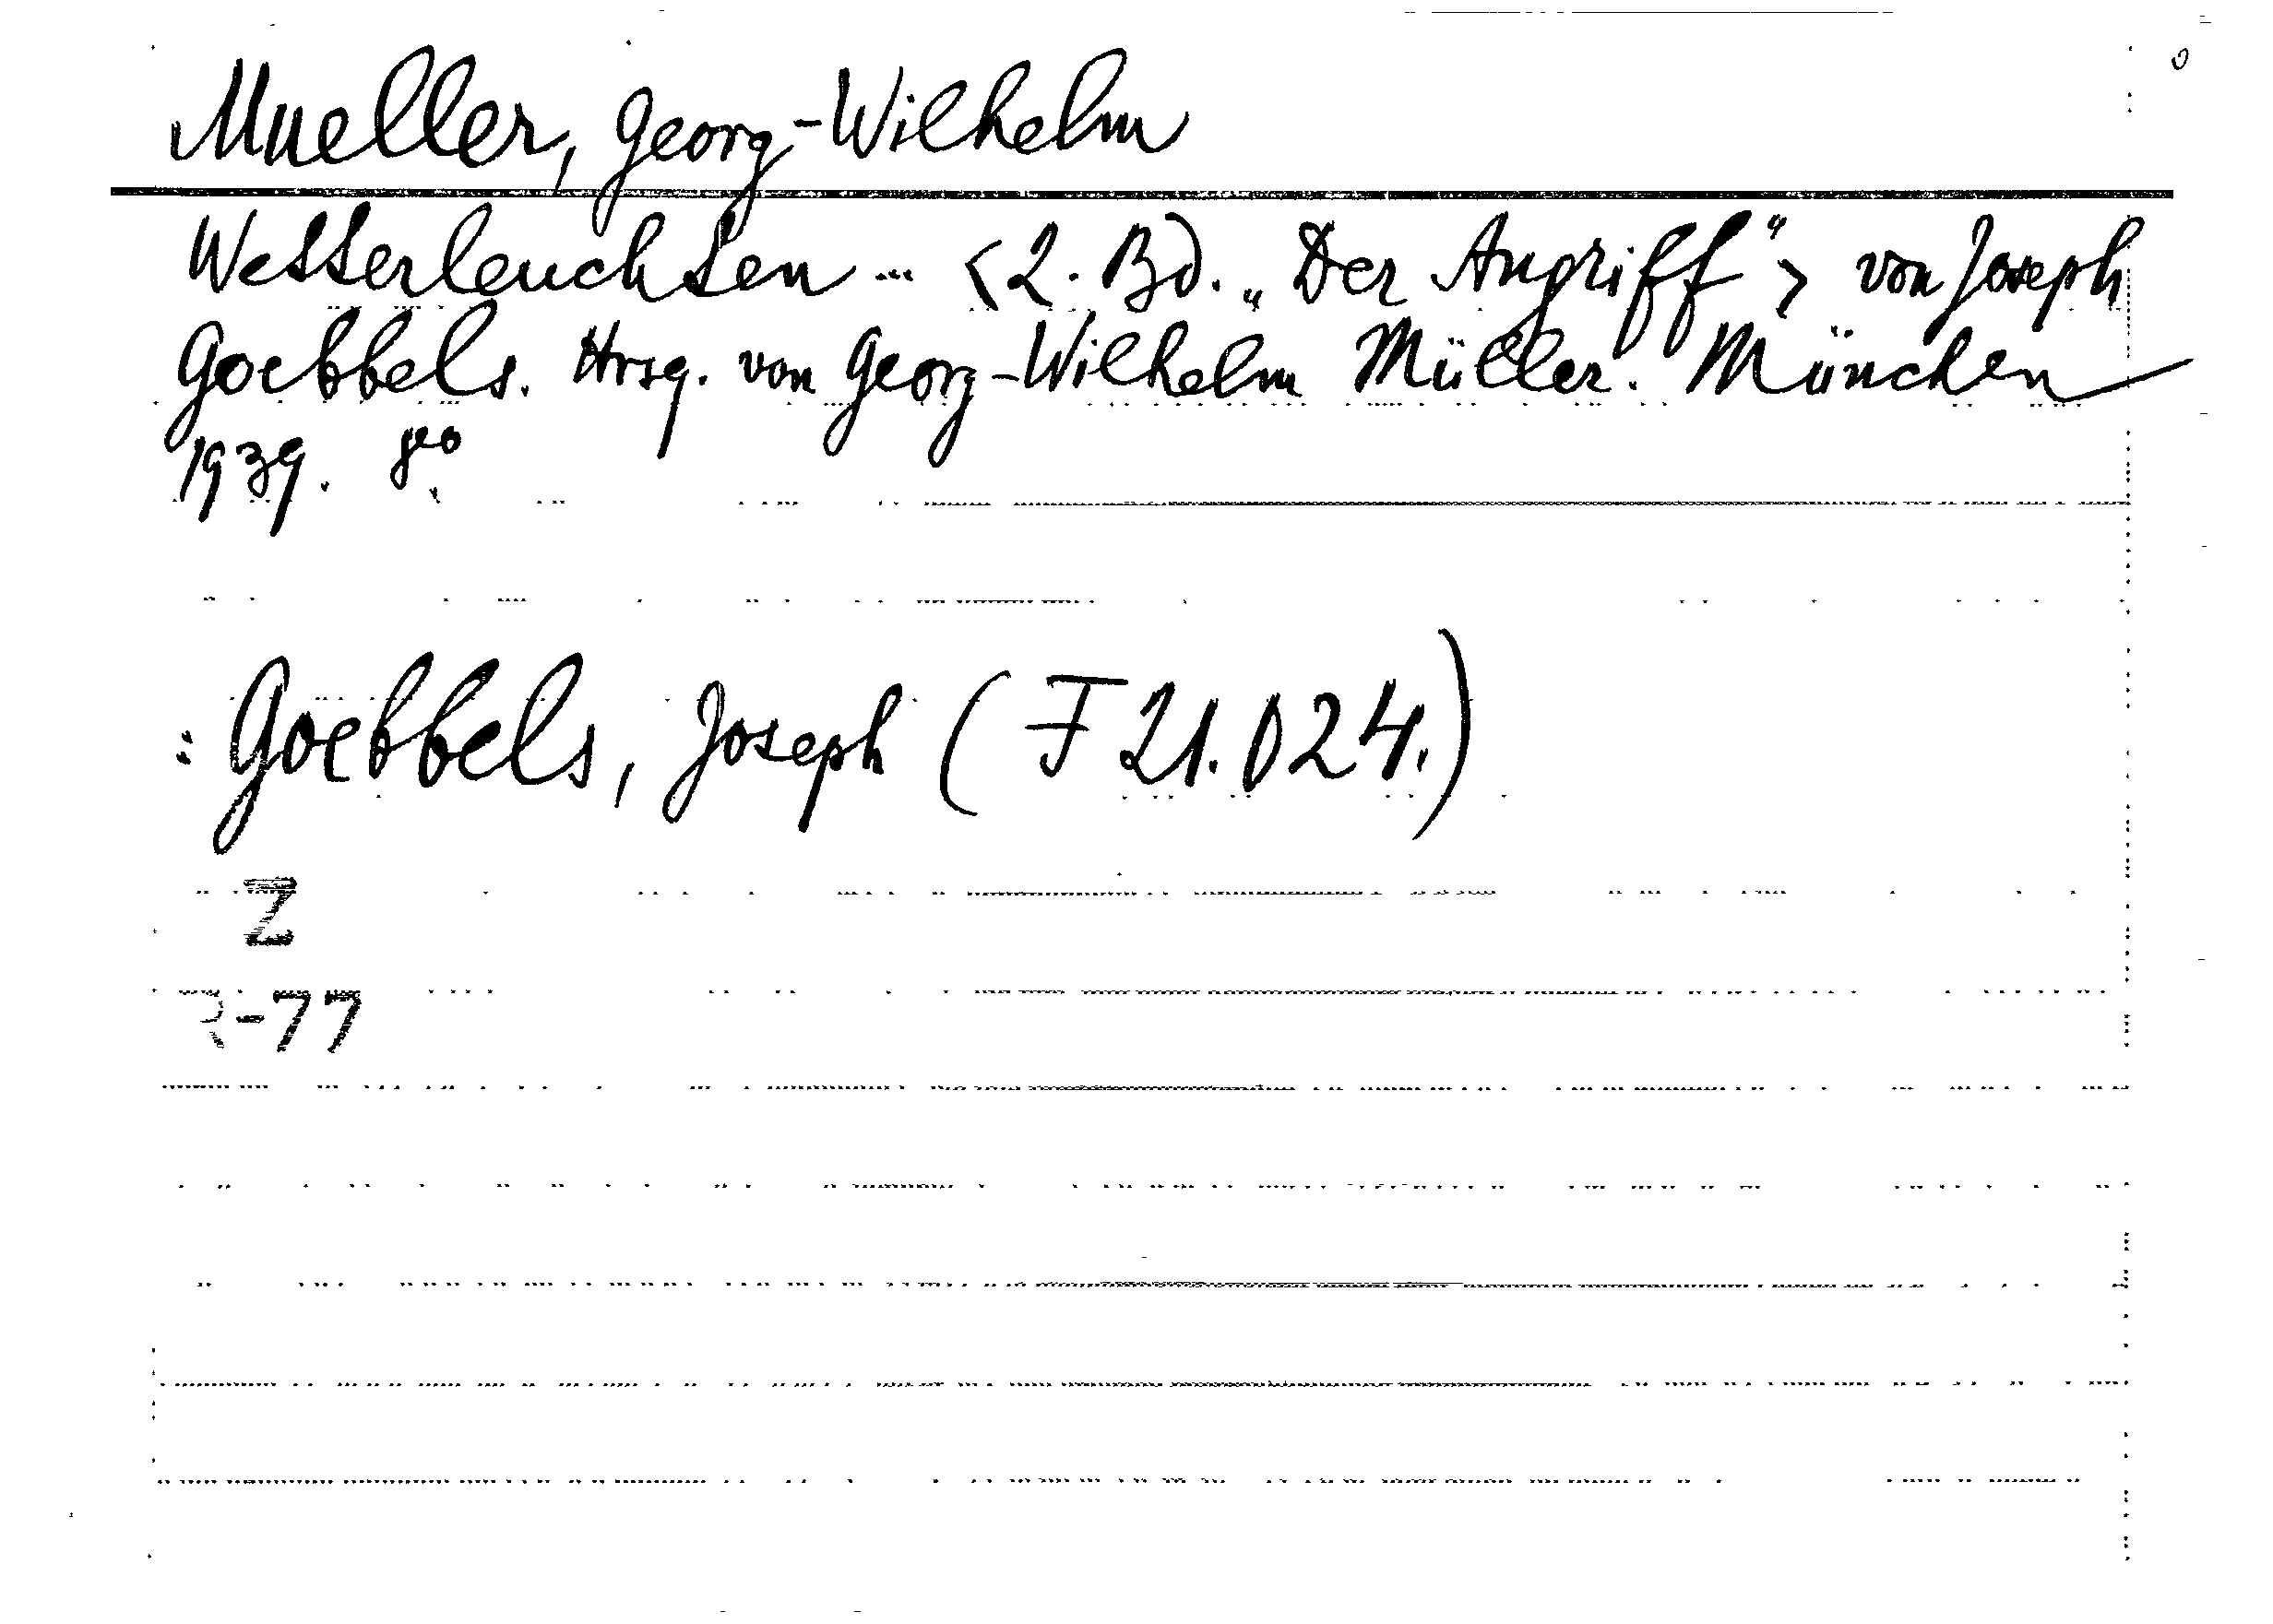 Mueller, Georg-Wilhelm
Wetterleuchten ... <2. Bd. „Der Angriff“> von Joseph
Goebbels. Hrsg. von Georg-Wilhelm Müller. München
1939. 8°.
: Goebbels, Joseph (F 21.024.)
Z
R-77